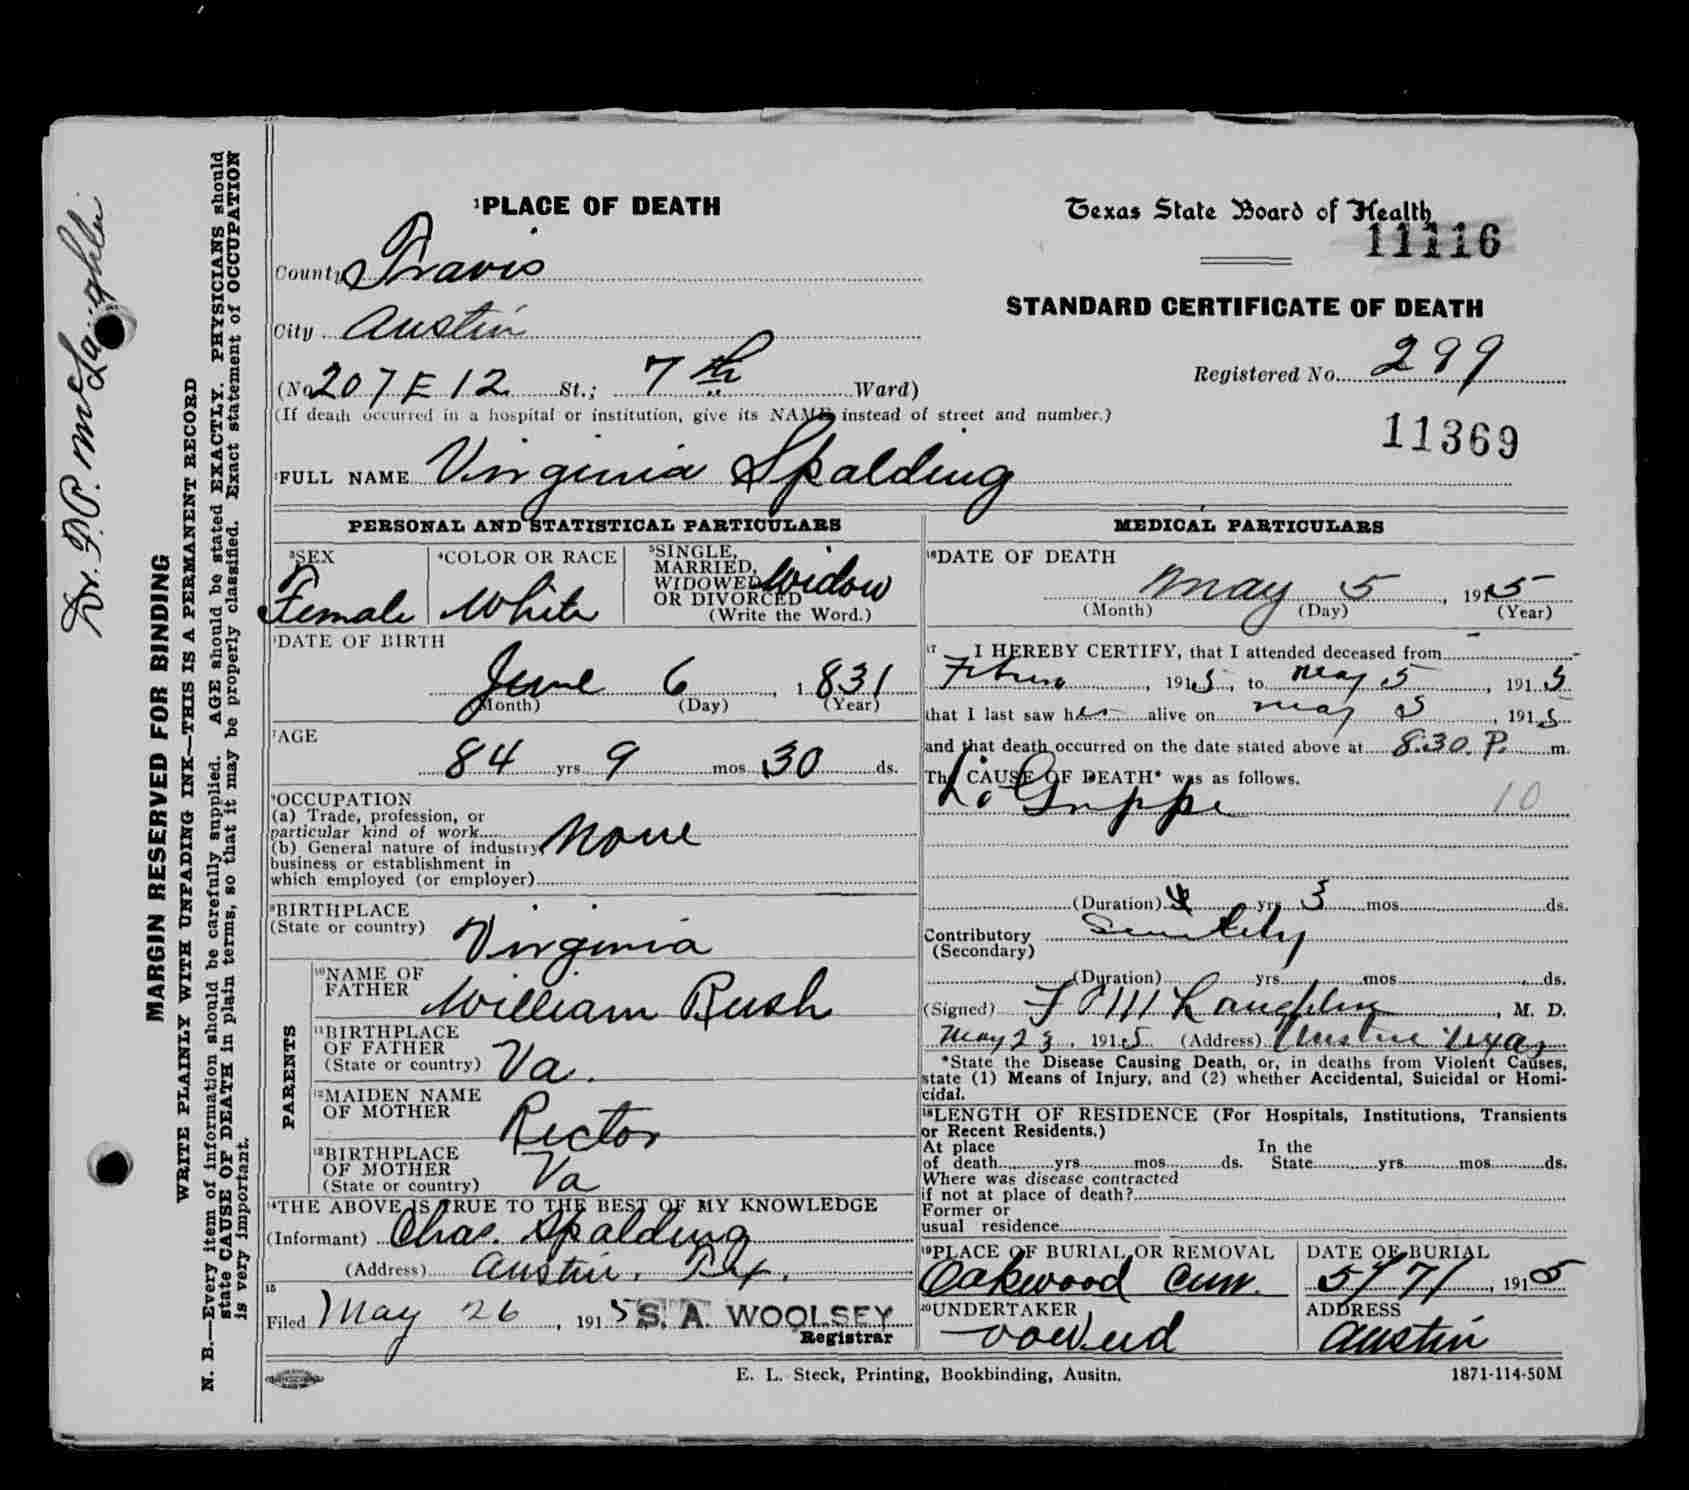 Dr. F. P. McLaughlin
MARGIN RESERVED FOR BINDING
WRITE PLAINLY WITH UNFADING INK—THIS IS A PERMANENT RECORD
N. B.—Every item of information should be carefully supplied. AGE should be stated EXACTLY. PHYSICIANS should
state CAUSE OF DEATH in plain terms, so that it may be properly classified. Exact statement of OCCUPATION
is very important.
1PLACE OF DEATH
County Travis
City Austin
(No 207 E 12 St.; 7th Ward)
(If death occurred in a hospital or institution, give its NAME instead of street and number.)
Texas State Board of Health
11116
STANDARD CERTIFICATE OF DEATH
Registered No. 299
11369
2FULL NAME Virginia Spalding
PERSONAL AND STATISTICAL PARTICULARS
3SEX
Female
4COLOR OR RACE
White
5SINGLE,
MARRIED,
WIDOWED
OR DIVORCED
Widow
(Write the Word.)
6DATE OF BIRTH
June 6, 1831
(Month) (Day) (Year)
7AGE
84 yrs 9 mos 30 ds.
8OCCUPATION
(a) Trade, profession, or
particular kind of work
(b) General nature of industry,
None
business or establishment in
which employed (or employer)
9BIRTHPLACE
(State or country)
Virginia
PARENTS
10NAME OF
FATHER
William Rush
11BIRTHPLACE
OF FATHER
(State or country)
Va.
12MAIDEN NAME
OF MOTHER
Rector
13BIRTHPLACE
OF MOTHER
(State or country)
Va
14THE ABOVE IS TRUE TO THE BEST OF MY KNOWLEDGE
(Informant) Chas. Spalding
(Address) Austin, Tex.
15
Filed May 26, 1915 S. A. WOOLSEY
Registrar
MEDICAL PARTICULARS
16DATE OF DEATH
May 5, 1915
(Month) (Day) (Year)
17 I HEREBY CERTIFY, that I attended deceased from
, 1915, to May 5, 1915
that I last saw her alive on May 5, 1915
and that death occurred on the date stated above at 8.30 P. m.
The CAUSE OF DEATH* was as follows.
La Grippe 10
(Duration) yrs 3 mos ds.
Contributory
(Secondary)
(Duration) yrs mos ds.
(Signed) F P McLaughlin, M. D.
May 23, 1915 (Address) Austin Texas
*State the Disease Causing Death, or, in deaths from Violent Causes,
state (1) Means of Injury, and (2) whether Accidental, Suicidal or Homi-
cidal.
18LENGTH OF RESIDENCE (For Hospitals, Institutions, Transients
or Recent Residents.)
At place In the
of death yrs mos ds. State yrs mos ds.
Where was disease contracted
if not at place of death?
Former or
usual residence
19PLACE OF BURIAL OR REMOVAL
Oakwood Cem.
DATE OF BURIAL
5/7/, 1915
20UNDERTAKER
ADDRESS
Austin
E. L. Steck, Printing, Bookbinding, Ausitn.
1871-114-50M